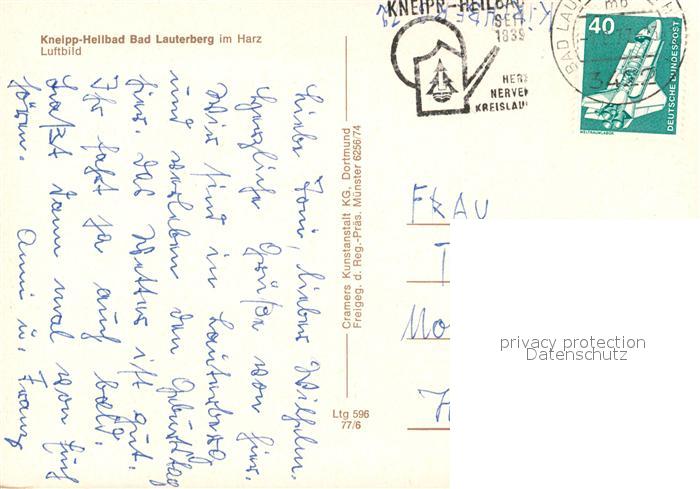 Kneipp-Heilbad Bad Lauterberg im Harz
Luftbild
Liebe Toni, lieber Wilhelm.
Herzliche Grüße von hier.
Wir sind in Lauterberg
und verleben den Geburtstag
hier. Das Wetter ist gut.
Ihr fahrt ja auch bald.
Laßt dann mal von Euch
hören.
Anni u. Franz
Cramers Kunstanstalt KG, Dortmund
Freigeg. d. Reg.-Präs. Münster 6256/74
Ltg 596
77/6
KNEIPP-HEILBAD
SEIT
1839
HERZ
NERVEN
KREISLAUF
BAD LAU
mb
342
40
DEUTSCHE BUNDESPOST
WELTRAUMLABOR
FRAU
T
Mo
H
privacy protection
Datenschutz